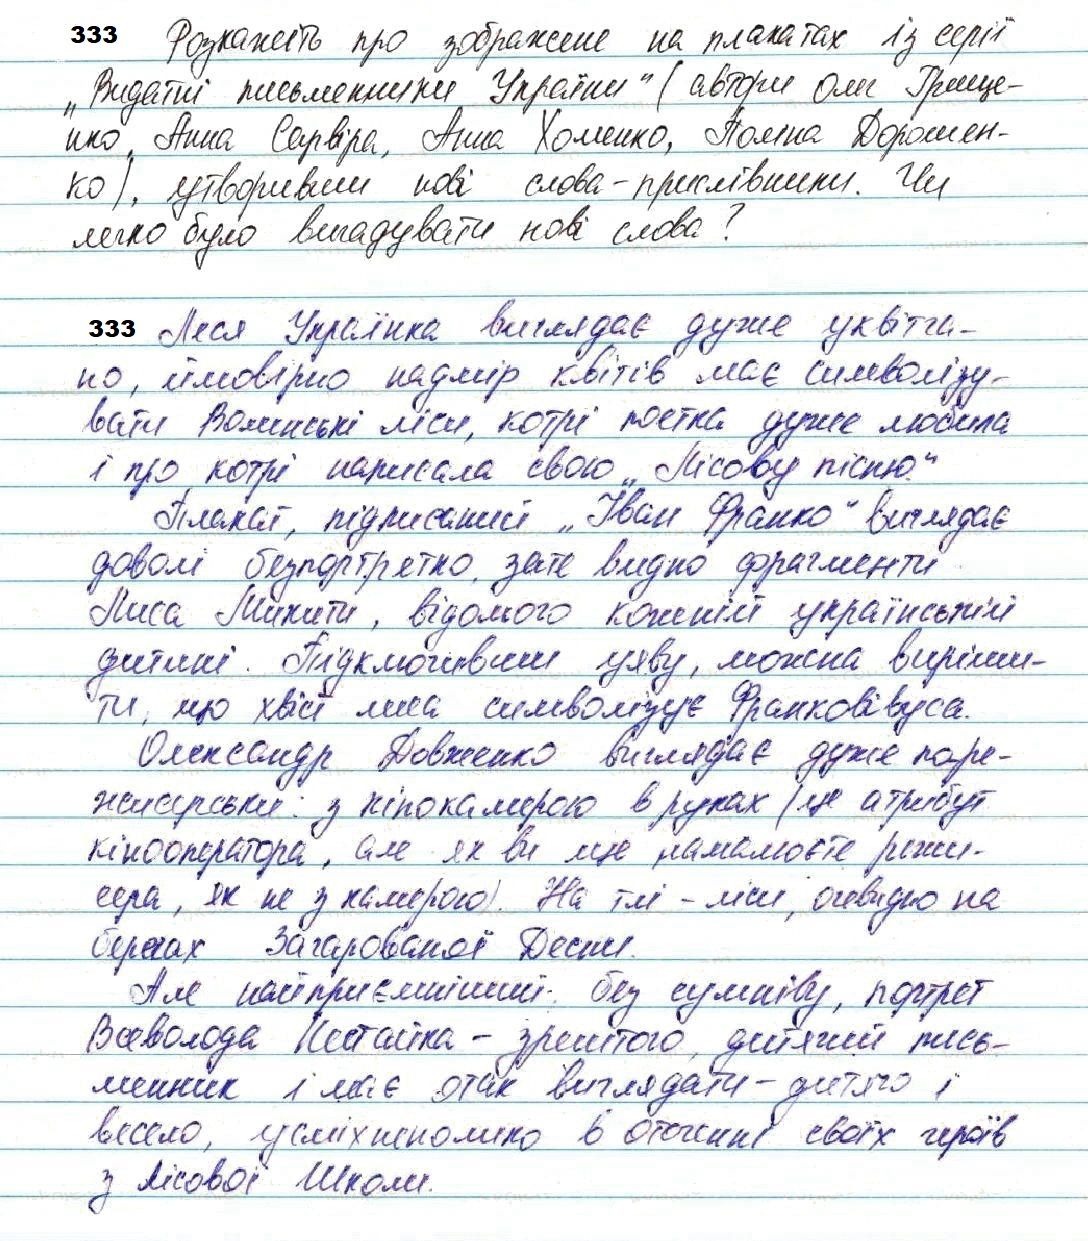 333 Розкажіть про зображене на плакатах із серії
„Видатні письменники України“ (автори Олег Грище-
нко, Анна Сарвіра, Анна Хоменко, Поліна Дорошен-
ко), утворивши нові слова-прислівники. Чи
легко було вигадувати нові слова?
333 Леся Українка виглядає дуже уквітча-
но, ймовірно надмір квітів має символізу-
вати Волинські ліси, котрі поетка дуже любила
і про котрі написала свою „Лісову пісню“
Плакат, підписаний „Іван Франко“ виглядає
доволі безпортретно, зате видно фрагменти
Лиса Микити, відомого кожній українській
дитині. Підключивши уяву, можна виріши-
ти, що хвіст лиса символізує Франкові вуса.
Олександр Довженко виглядає дуже поре-
жисерськи: з кінокамерою в руках (це атрибут
кінооператора, але як ви ще намалюєте режи-
сера, як не з камерою). На тлі - ліси, очевидно на
берегах Зачарованої Десни.
Але найприємніший, без сумніву, портрет
Всеволода Нестайка - зрештою, дитячий пись-
менник і має отак виглядати - дитячо і
весело, усміхнено в оточенні своїх героїв
з Лісової Школи.